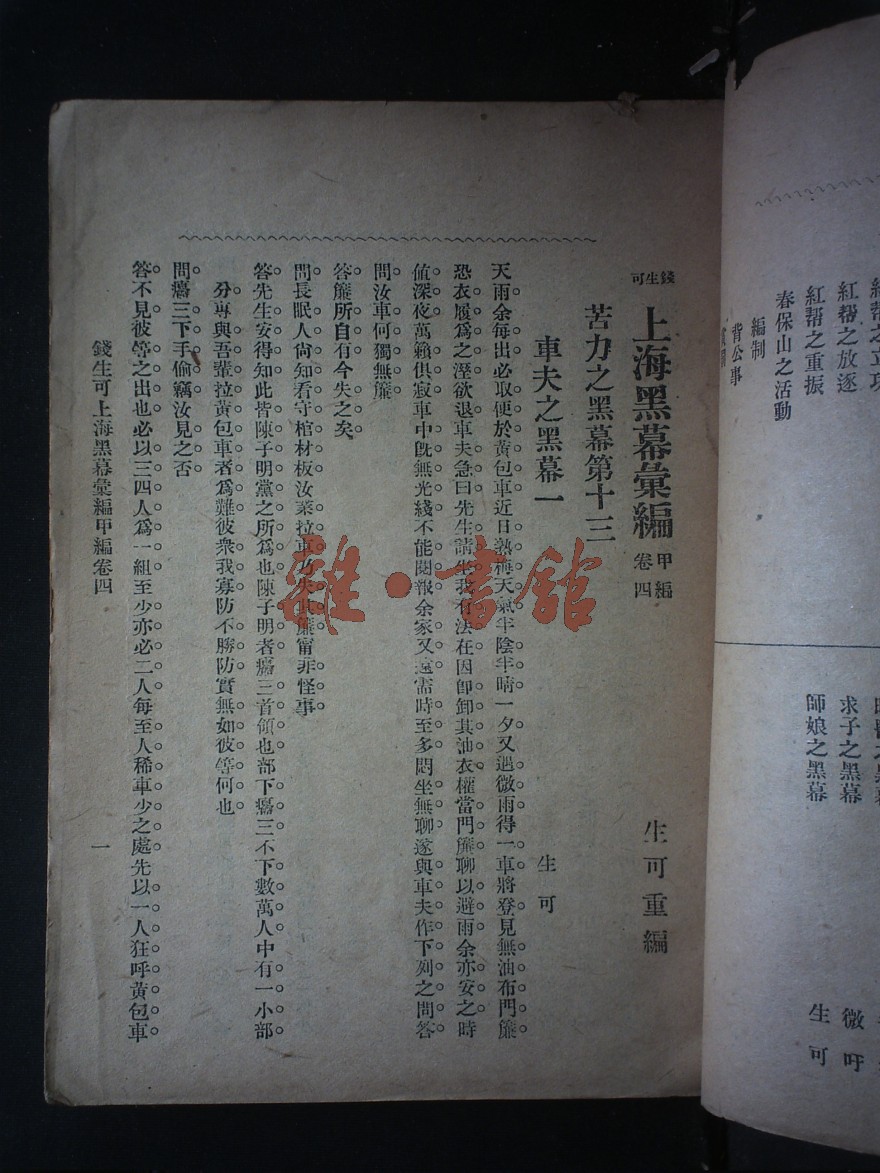 紅幫之放逐
紅幫之重振
春保山之活動
編制
背公事
求子之黑幕
師娘之黑幕
微吁
生可
錢生可
上海黑幕彙編
甲編
卷四
生可重編
苦力之黑幕第十三
車夫之黑幕一
生可
天雨余每出必取便於黃包車近日熟梅天氣半陰半晴一夕又遇微雨得一車將登見無油布門簾
恐衣履爲之溼欲退車夫急曰先生請坐我有法在因卽卸其油衣權當門簾聊以避雨余亦安之時
値深夜萬籟俱寂車中旣無光綫不能閱報余家又遠需時至多悶坐無聊遂與車夫作下列之問答
問汝車何獨無簾
答簾所自有今失之矣
問長眠人尙知看守棺材板汝業拉車乃失其簾甯非怪事
答先生安得知此皆陳子明黨之所爲也陳子明者癟三首領也部下癟三不下數萬人中有一小部
分專與吾輩拉黃包車者爲難彼衆我寡防不勝防實無如彼等何也
問癟三下手偷竊汝見之否
答不見彼等之出也必以三四人爲一組至少亦必二人每至人稀車少之處先以一人狂呼黃包車
錢生可上海黑幕彙編甲編卷四
一
雜·書館